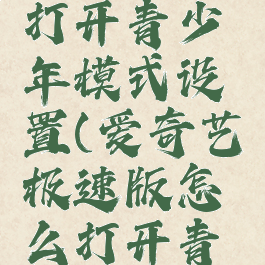 打开青少
年模式设
置(爱奇艺
极速版怎
么打开青